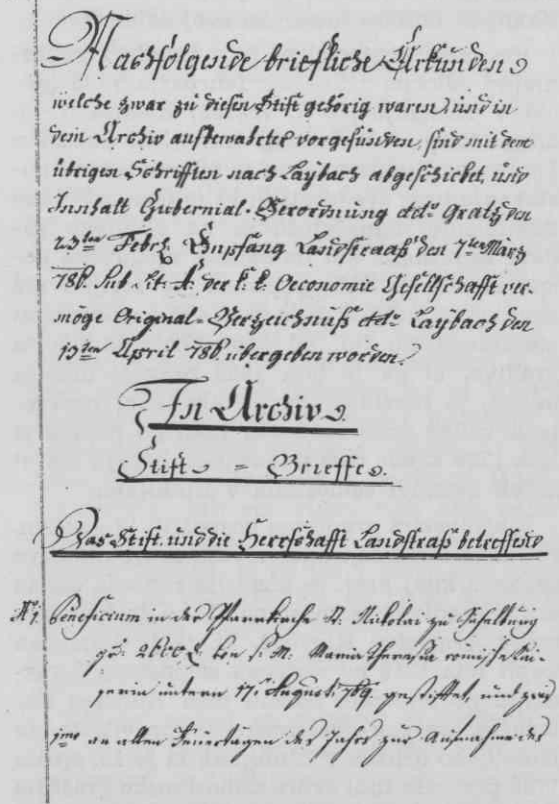 Nachfolgende briefliche Urkunden
welche zwar zu diesen Stift gehörig waren, und in
dem Archiv aufbewahrter vorgefunden, sind mit dem
übrigen Schrifften nach Laybach abgeschicket, und
Innhalt Gubernial-Verordnung ddto Gratz den
23ten Febr. Empfang Landstraaß den 7ten März
786. Sub Lit: A: der k: k: Oeconomie Gesellschafft ver-
möge Original-Verzeichnuß ddto Laybach den
13ten April 786. übergeben worden.
In Archiv.
Stift = Brieffe.
Das Stift und die Herrschafft Landstraß betreffend
No 1. Beneficium in der Pfarrkirche St. Nikolai zu
pr: 2000 f. von I: M: Maria Theresia römische Kai-
serin unterm 17: August 769. gestifftet, und zwar
1mo an allen Feuertägen des Jahrs zur Aufnahme des